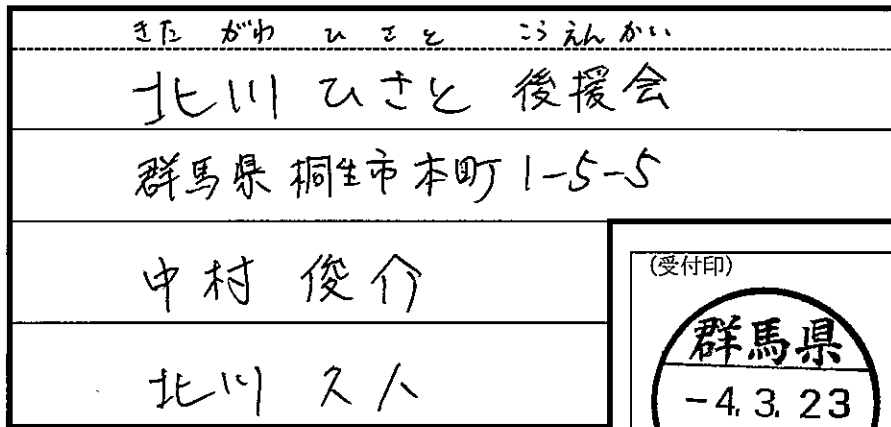 きた がわ ひさと こうえんかい
北川 ひさと 後援会
群馬県 桐生市 本町 1-5-5
中村 俊介
(受付印)
群馬県
北川 久人
-4.3.23